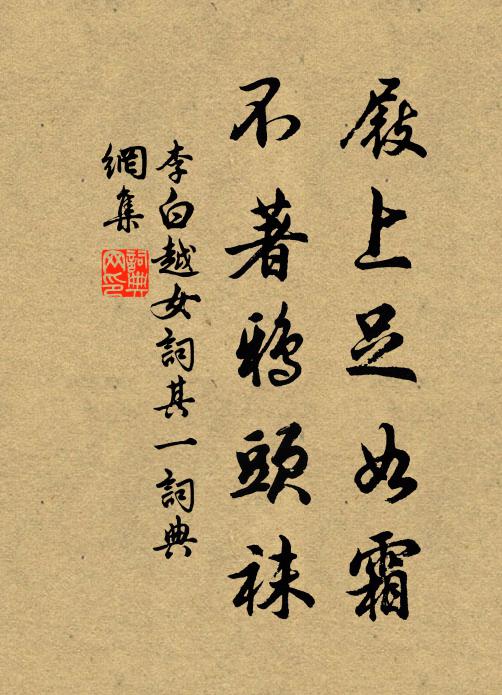 屐上足如霜
不著鴉頭袜
李白越女詞其一詞典
網集
詞典
网印